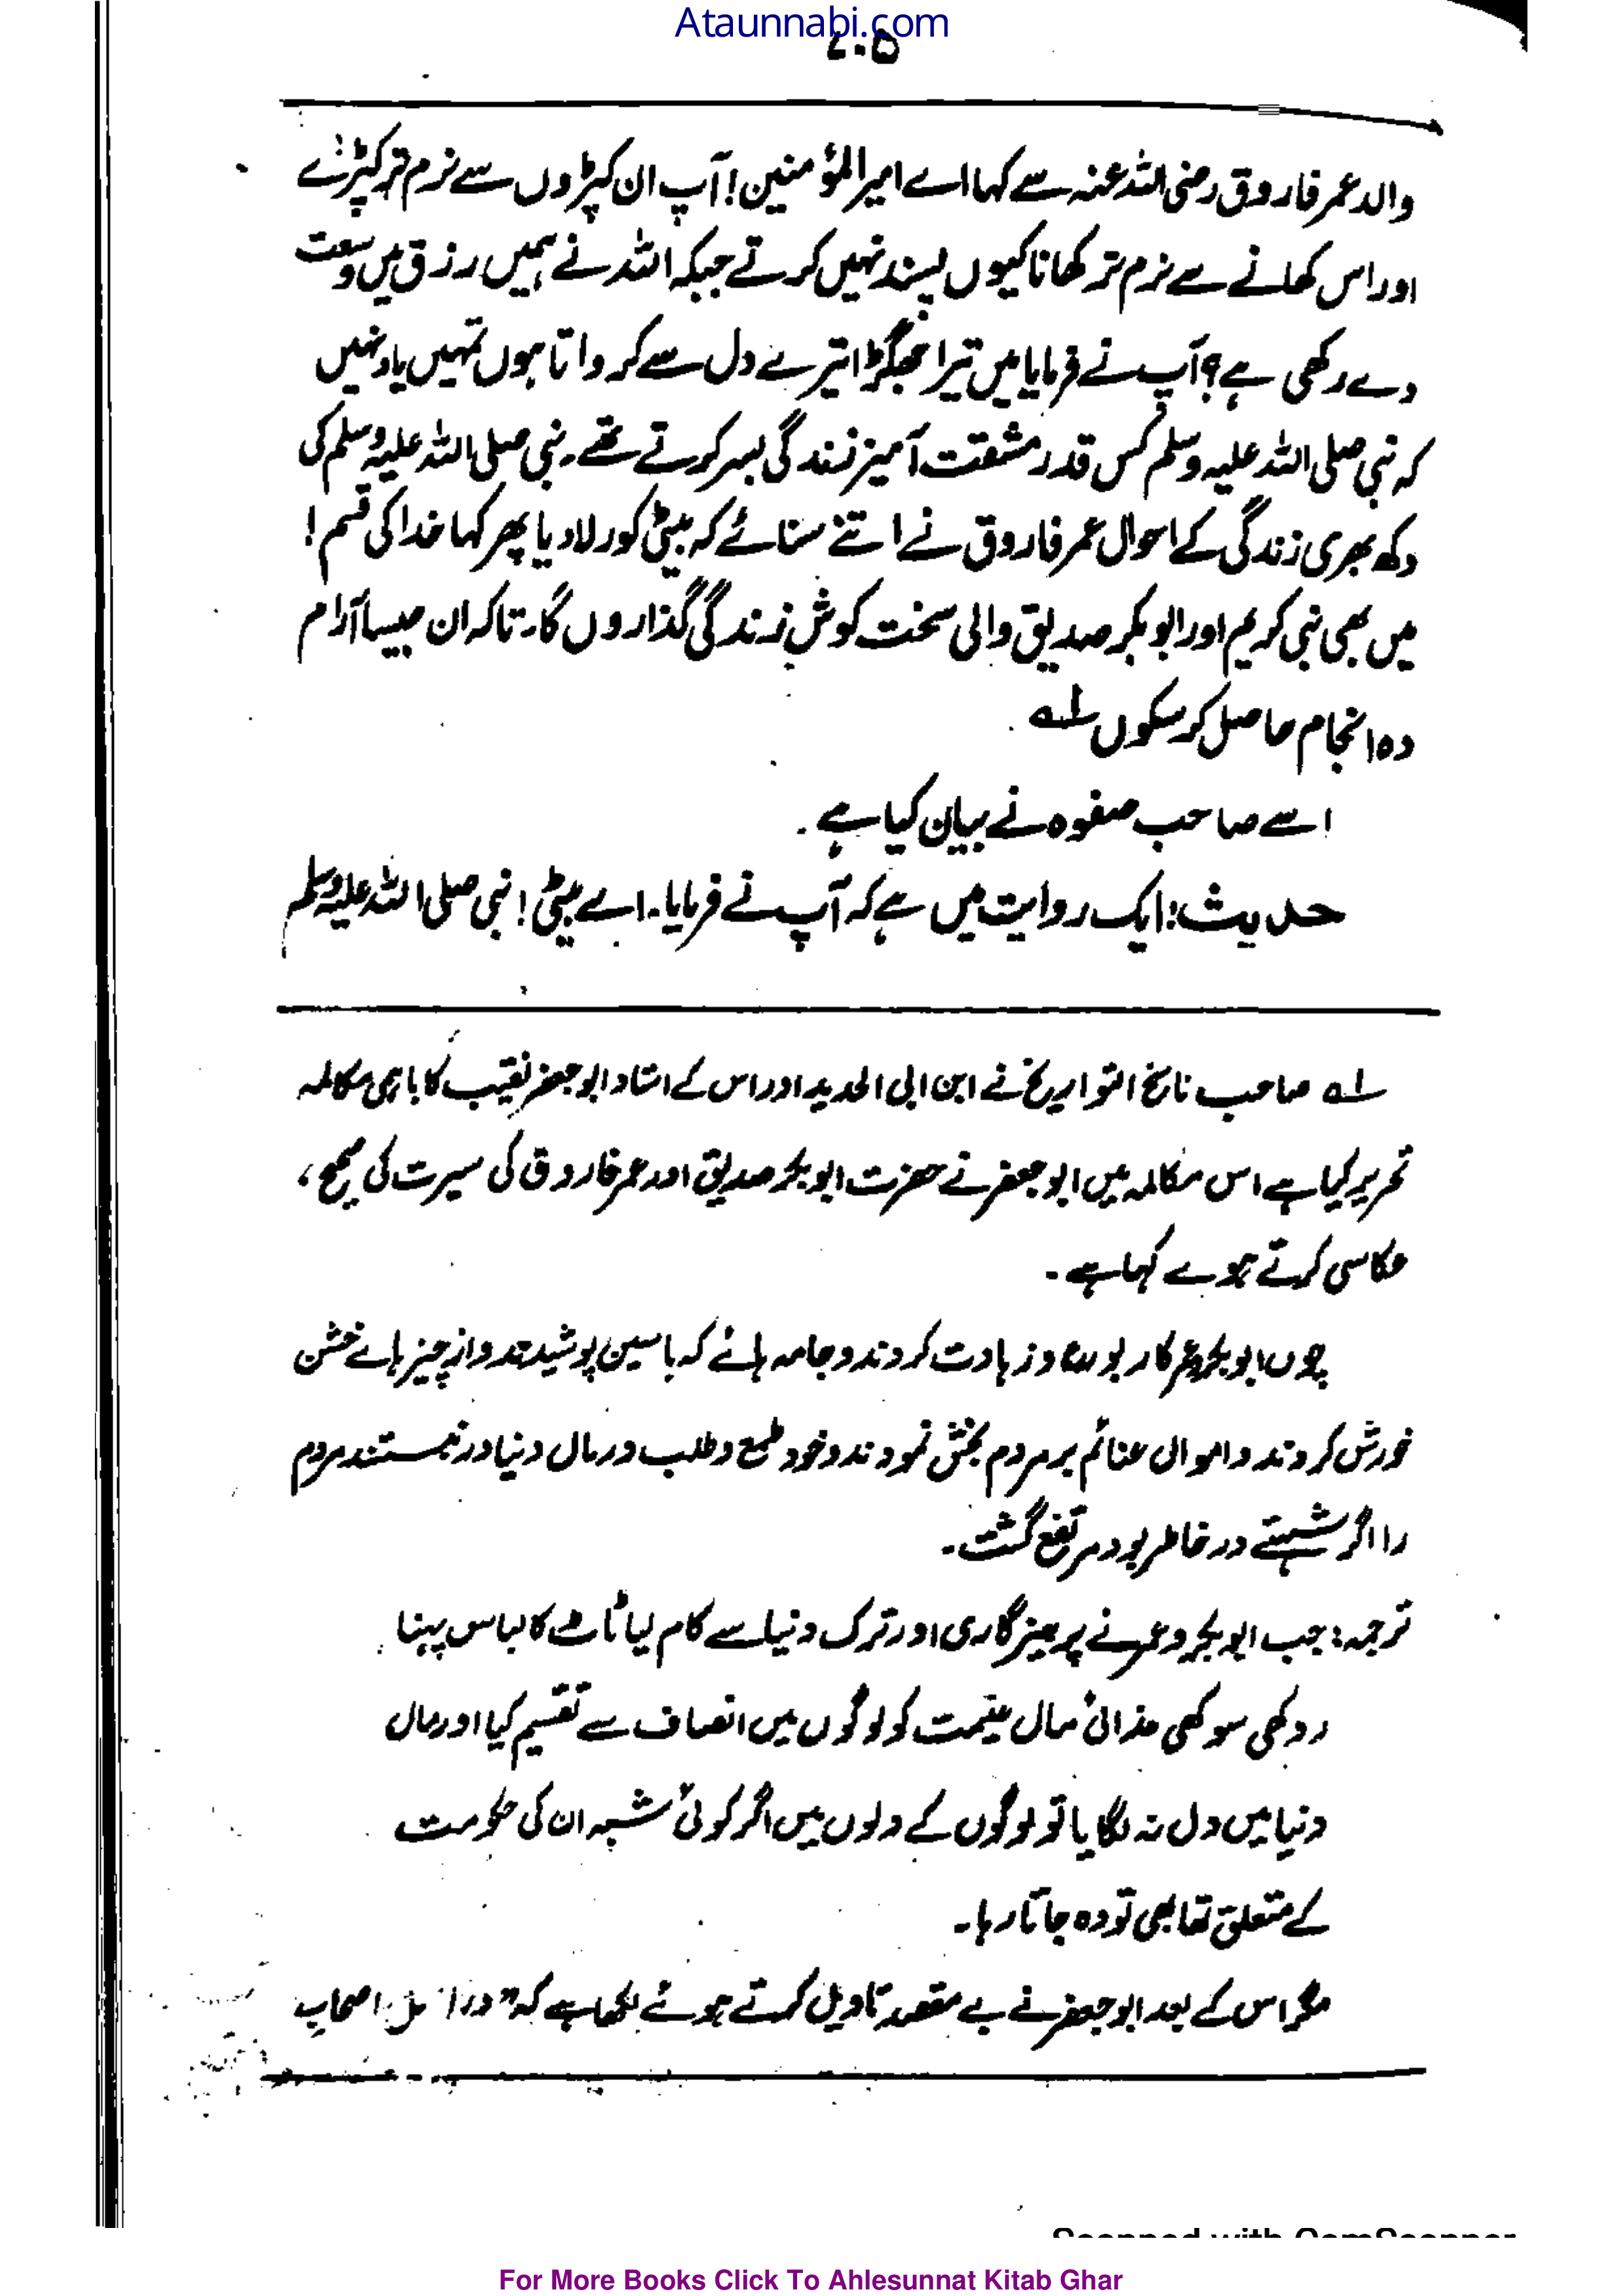 Ataunnabi.com
۷۰۵
والد عمر فاروق رضی اللہ عنہ سے کہا اے امیرالمؤمنین! آپ ان کپڑوں سے نرم تر کپڑے
اور اس کھانے سے نرم تر کھانا کیوں پسند نہیں کرتے جبکہ اللہ نے ہمیں رزق میں وسعت
دے رکھی ہے؟ آپ نے فرمایا میں تیرا جھگڑا تیرے دل سے کرواتا ہوں تمہیں یاد نہیں
کہ نبی صلی اللہ علیہ وسلم کس قدر مشقت آمیز زندگی بسر کرتے تھے۔ نبی صلی اللہ علیہ وسلم کی
دکھ بھری زندگی کے احوال عمر فاروق نے اتنے سنائے کہ بیٹی کو رلا دیا پھر کہا خدا کی قسم!
میں بھی نبی کریم اور ابوبکر صدیق والی سخت کوش زندگی گذاروں گا۔ تاکہ ان جیسا آرام
دہ انجام حاصل کر سکوں ۱؎
اسے صاحب صفوہ نے بیان کیا ہے۔
حدیث: ایک روایت میں ہے کہ آپ نے فرمایا۔ اے بیٹی! نبی صلی اللہ علیہ وسلم
۱؎ صاحب ناسخ التواریخ نے ابن ابی الحدید اور اس کے استاد ابو جعفر نقیب کا باہمی مکالمہ
تحریر کیا ہے اس مکالمہ میں ابو جعفر نے حضرت ابوبکر صدیق اور عمر فاروق کی سیرت کی صحیح،
عکاسی کرتے ہوے کہا ہے۔
چوں ابوبکر و عمر کار بورع و زہادت کردند و جامہ ہائے کہ باسین پوشیدند و از چیز ہاے خشن
خورش کردند و اموالی غنائم بر مردم بخش نمودند و خود طمع و طلب در مال دنیا در نبستند مردم
را اگر شبہتے در خاطر بود مرتفع گشت۔
ترجمہ: جب ابوبکر و عمر نے پرہیزگاری اور ترک دنیا سے کام لیا ٹاٹ کا لباس پہنا
روکھی سوکھی غذائی مال غنیمت کو لوگوں میں انصاف سے تقسیم کیا اور مال
دنیا میں دل نہ لگایا تو لوگوں کے دلوں میں اگر کوئی شبہ ان کی حکومت
کے متعلق تھا بھی تو وہ جاتا رہا۔
مگر اس کے بعد ابو جعفر نے بے مقصد تاویل کرتے ہوئے لکھا ہے کہ" اصحاب
Scanned with CamScanner
For More Books Click To Ahlesunnat Kitab Ghar